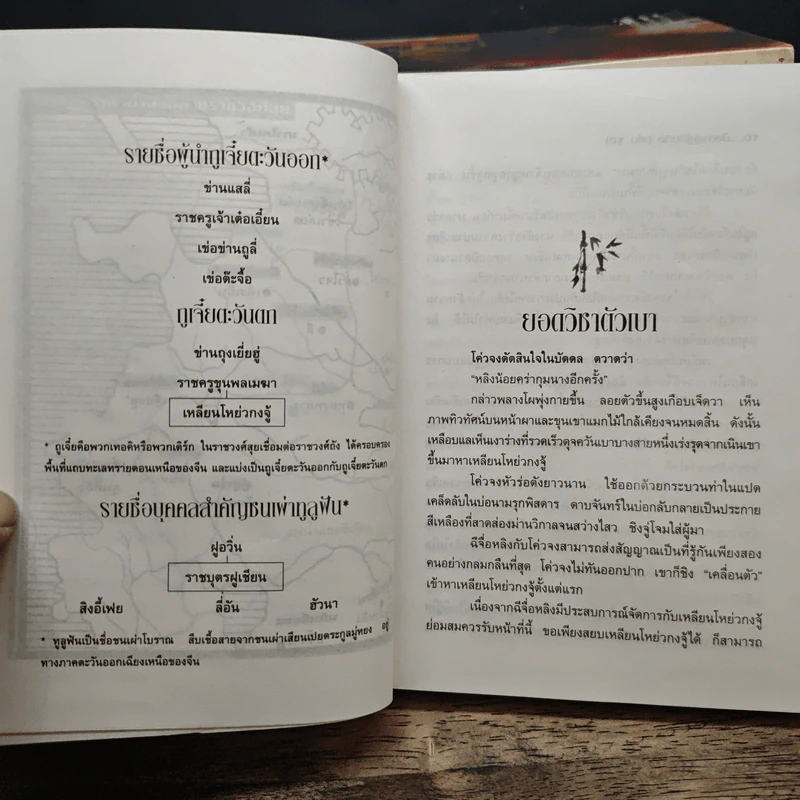 รายชื่อผู้นำทูเจี๋ยตะวันออก*
ข่านแสลี่
ราชครูเจ้าเต๋อเอี๋ยน
เข่อข่านถูลี่
เข่อต๊ะจื้อ
ทูเจี๋ยตะวันตก
ข่านถุงเยี่ยฮู่
ราชครูขุนพลเมฆา
เหลียนโหย่วกงจู้
* ถูเจี๋ยคือพวกเทอคิหรือพวกเติร์ก ในราชวงศ์สุยเชื่อมต่อราชวงศ์ถัง ได้ครอบครอง
พื้นที่แถบทะเลทรายตอนเหนือของจีน และแบ่งเป็นถูเจี๋ยตะวันออกกับถูเจี๋ยตะวันตก
รายชื่อบุคคลสำคัญชนเผ่าทูลูฟัน*
ฝูอวิ่น
ราชบุตรฝูเชียน
สิงอี้เฟย ลี่อัน ฮัวนา
* ทูลูฟันเป็นชื่อชนเผ่าโบราณ สืบเชื้อสายจากชนเผ่าเสียนเปยตระกูลมู่หยง อยู่
ทางภาคตะวันออกเฉียงเหนือของจีน
ยอดวิชาตัวเบา
โค่วจงตัดสินใจในบัดดล ตวาดว่า
“หลิงน้อยคร่ากุมนางอีกครั้ง”
กล่าวพลางโผพุ่งกายขึ้น ลอยตัวขึ้นสูงเกือบเจ็ดวา เห็น
ภาพทิวทัศน์บนหน้าผาและขุนเขาแมกไม้ใกล้เคียงจนหมดสิ้น ดังนั้น
เหลือบแลเห็นเงาร่างที่รวดเร็วดุจควันเบาบางสายหนึ่งเร่งรุดจากเนินเขา
ขึ้นมาหาเหลียนโหย่วกงจู้
โค่วจงหัวร่อดังยาวนาน ใช้ออกด้วยกระบวนท่าในแปด
เคล็ดลับในบ่อนามรุกพิสดาร ดาบจันทร์ในบ่อกลับกลายเป็นประกาย
สีเหลืองที่สาดส่องผ่านวิกาลจนสว่างไสว ชิงจู่โจมใส่ผู้มา
ฉีจื่อหลิงกับโค่วจงสามารถส่งสัญญาณเป็นที่รู้กันเพียงสอง
คนอย่างกลมกลืนที่สุด โค่วจงไม่ทันออกปาก เขาก็ชิง “เคลื่อนตัว”
เข้าหาเหลียนโหย่วกงจู้ตั้งแต่แรก
เนื่องจากฉีจื่อหลิงมีประสบการณ์จัดการกับเหลียนโหย่วกงจู้
ย่อมสมควรรับหน้าที่นี้ ขอเพียงสยบเหลียนโหย่วกงจู้ได้ ก็สามารถ